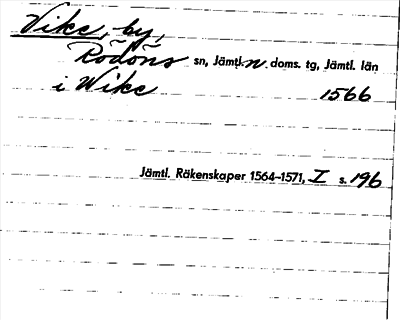 Vike, by,
Rödöns sn, Jämtl. n. doms. tg, Jämtl. län
i Wike 1566
Jämtl. Räkenskaper 1564-1571, I s. 196